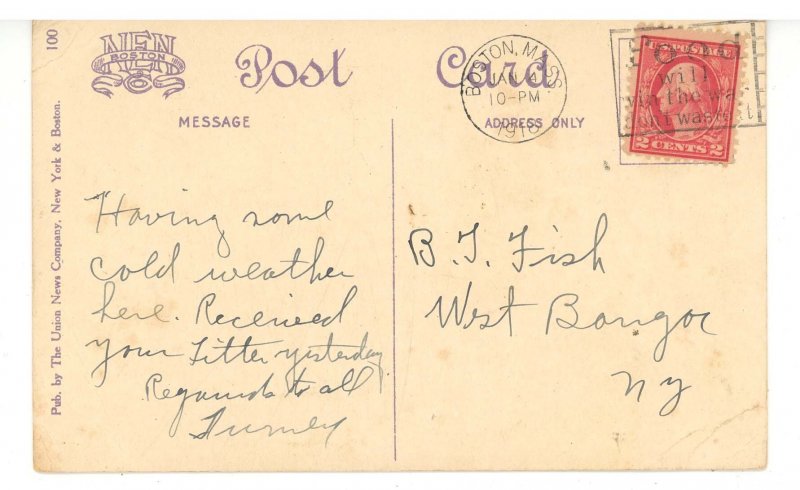 100
Pub. by The Union News Company, New York & Boston.
NEN
BOSTON
Post Card
MESSAGE
ADDRESS ONLY
BOSTON, MASS.
JAN 4
10-PM
1918
FOOD
will
win the wa
don't waste it
U.S. POSTAGE
2 CENTS 2
Having some
cold weather
here. Received
your Litter yesterday
Regards to all
B. J. Fish
West Bangor
NY